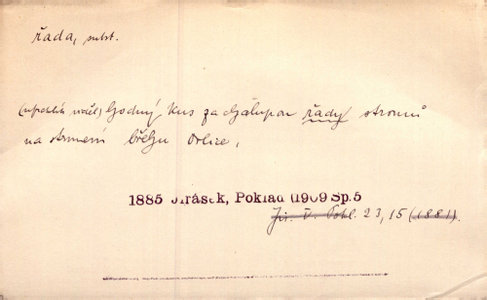 řada, subst.
Hodný kus za chalupou řady stromů
na strmém břehu Orlice,
1885 Jirásek, Poklad (1909 Sp.5
23, 15 (1881).